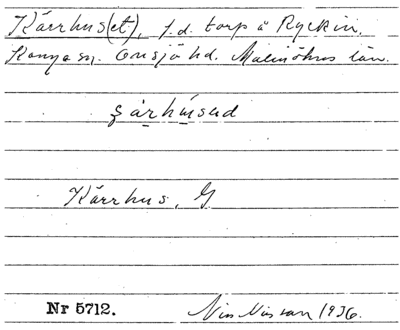 Kärrhus(et), f.d. torp å Ryckin.
Konga sn. Onsjö hd. Malmöhus län.
ʂärhúsəd
Kärrhus, G
Nr 5712. Nils Nilsson 1936.